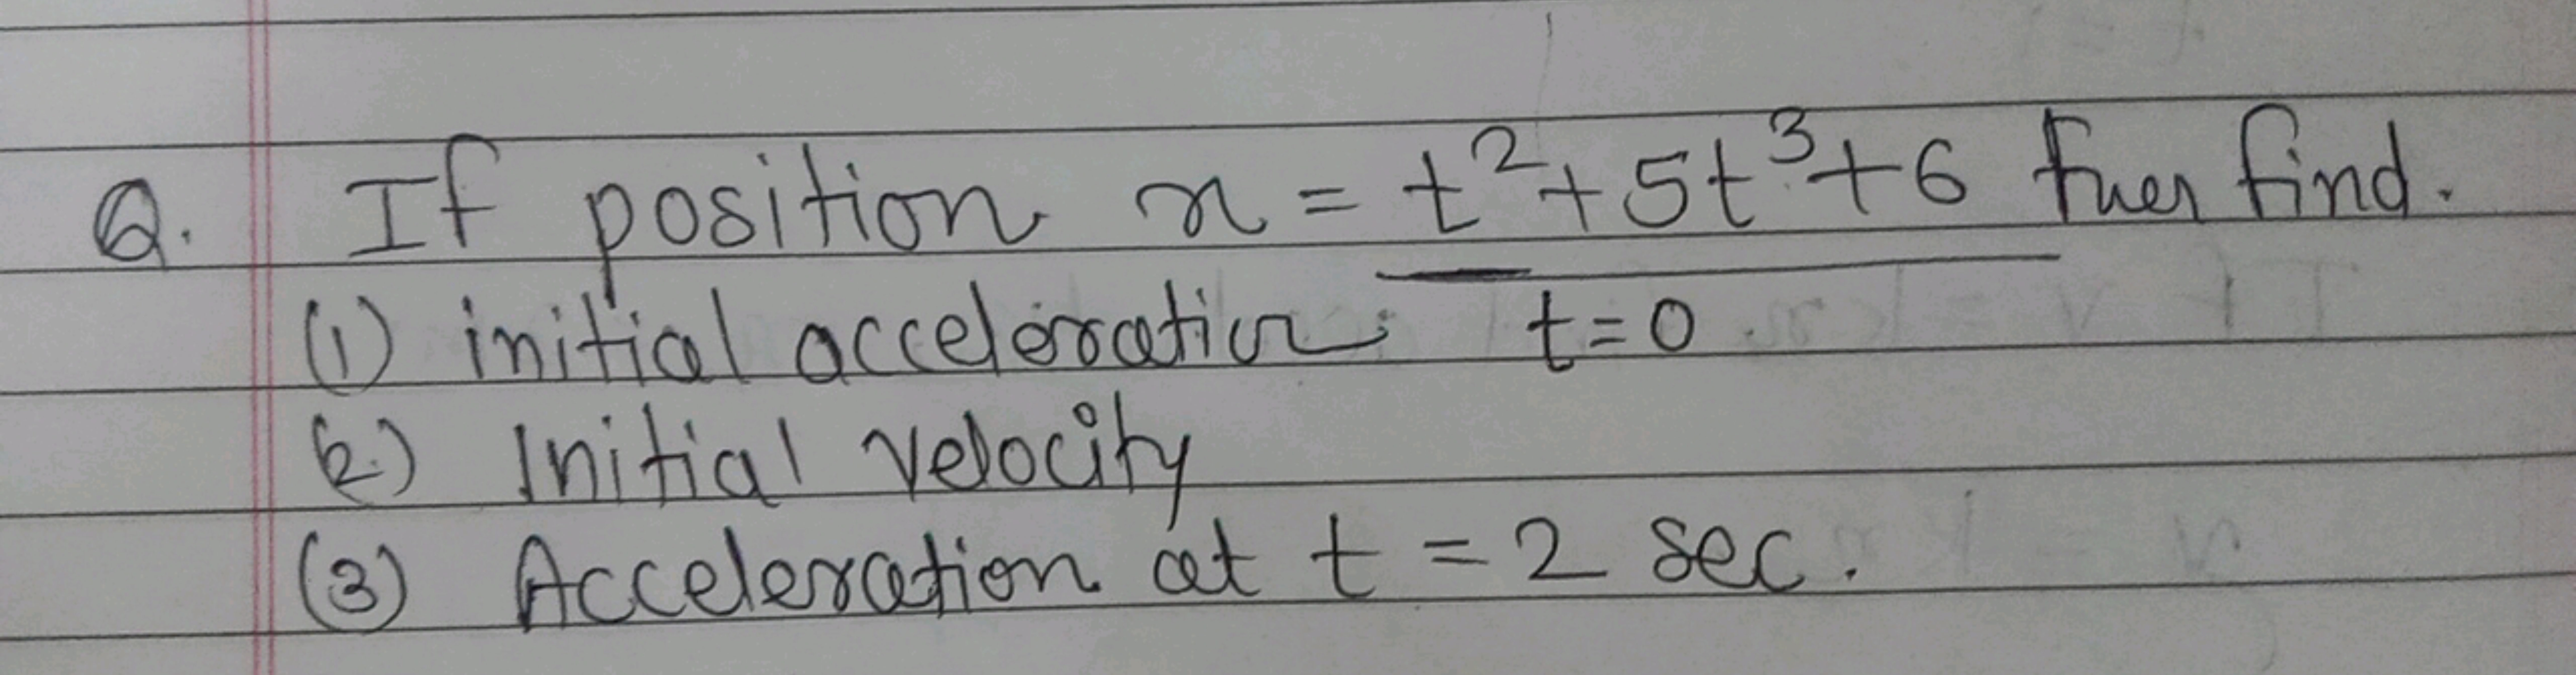 Q. If position x = t²+5t³+6 then find.
(1) initial acceleration t=0
(2) Initial velocity
(3) Acceleration at t = 2 sec.